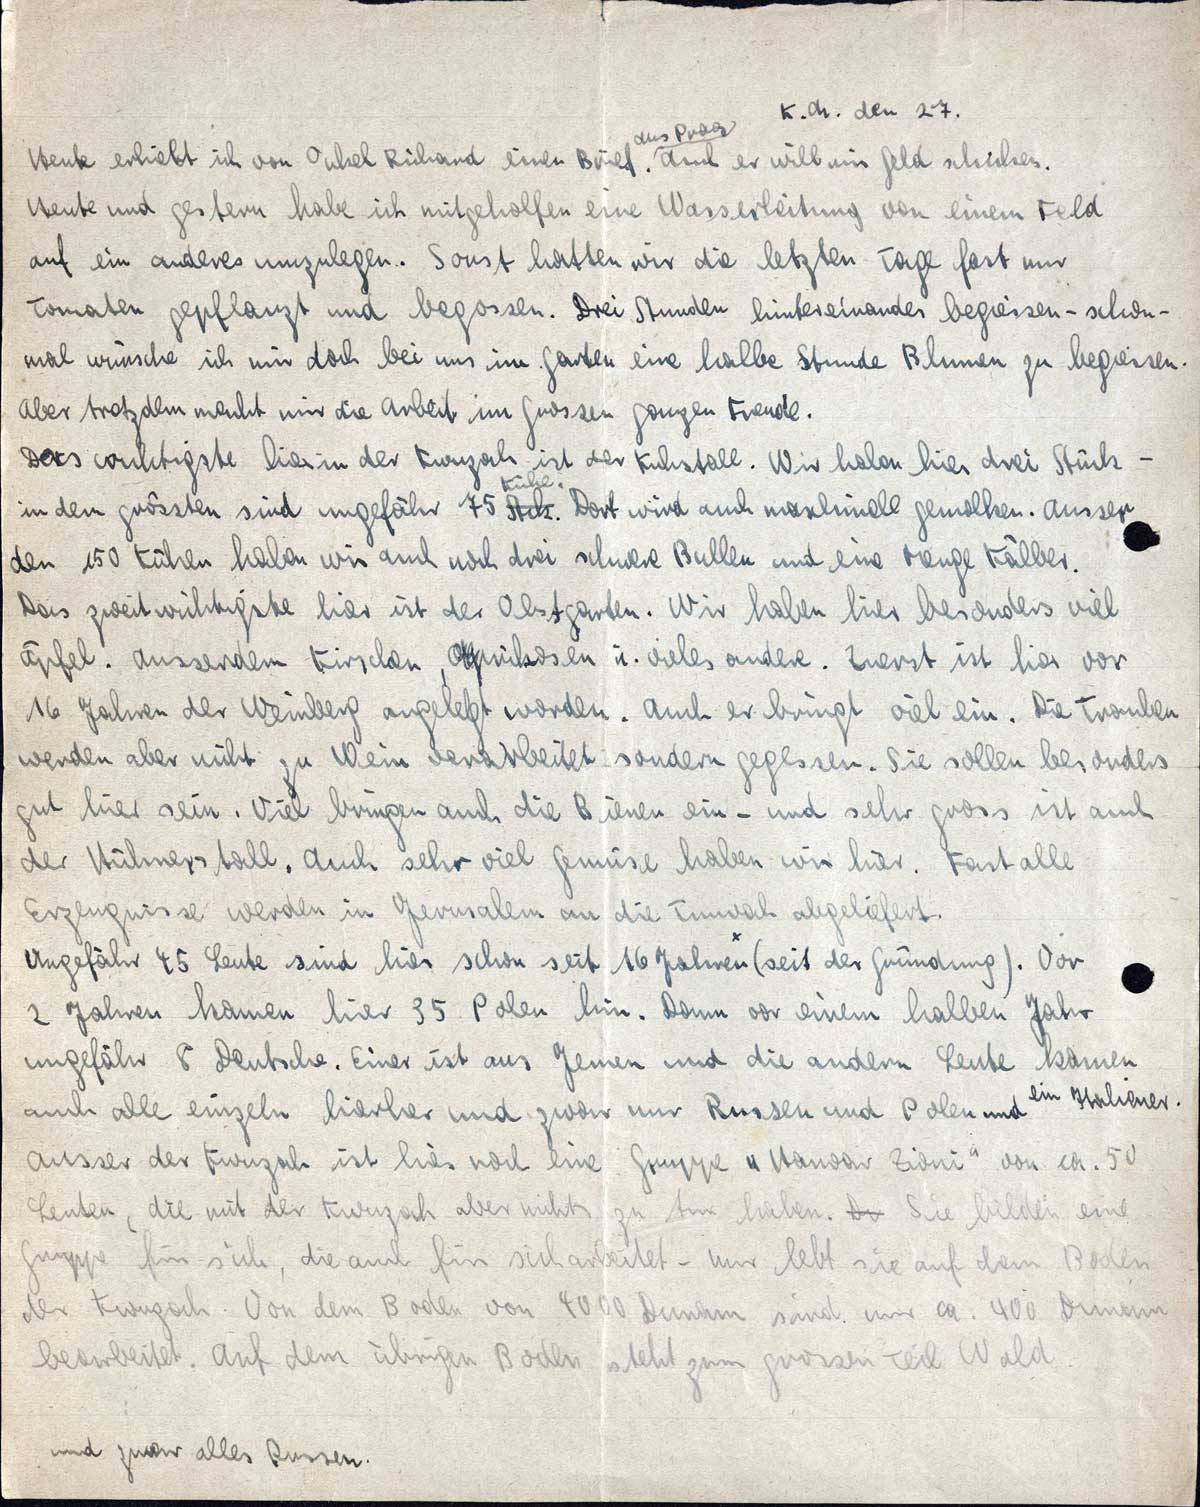 K.A. den 27.
Heute erhielt ich von Onkel Richard einen Brief aus Prag. Auch er will mir Geld schicken.
Heute und gestern habe ich mitgeholfen eine Wasserleitung von einem Feld
auf ein anderes umzulegen. Sonst hatten wir die letzten Tage fast nur
Tomaten gepflanzt und begossen. Drei Stunden hintereinander begiessen - schon-
mal wünsche ich mir doch bei uns im Garten eine halbe Stunde Blumen zu begiessen.
Aber trotzdem macht mir die Arbeit im Grossen ganzen Freude.
Das wichtigste hier in der Kwuzah ist der Kuhstall. Wir haben hier drei Stück -
in dem grössten sind ungefähr 75 Kühe. Dort wird auch maschinell gemolken. Ausser
den 150 Kühen haben wir auch noch drei schwere Bullen und eine Menge Kälber.
Das zweitwichtigste hier ist der Obstgarten. Wir haben hier besonders viel
Äpfel. Ausserdem Kirschen, Aprikosen u. vieles andere. Zuerst ist hier vor
16 Jahren der Weinberg angelegt worden. Auch er bringt viel ein. Die Trauben
werden aber nicht zu Wein verarbeitet sondern gegessen. Sie sollen besonders
gut hier sein. Viel bringen auch die Bienen ein - und sehr gross ist auch
der Hühnerstall. Auch sehr viel Gemüse haben wir hier. Fast alle
Erzeugnisse werden in Jerusalem an die Tnuvah abgeliefert.
Ungefähr 45 Leute sind hier schon seit 16 Jahren x (seit der Gründung). Vor
2 Jahren kamen hier 35 Polen hin. Dann vor einem halben Jahr
ungefähr 8 Deutsche. Einer ist aus Jemen und die andern Leute kamen
auch alle einzeln hierher und zwar nur Russen und Polen und ein Italiener.
Ausser der Kwuzah ist hier noch eine Gruppe "Hanoar Zioni" von ca. 50
Leuten, die mit der Kwuzah aber nichts zu tun haben. Sie bilden eine
Gruppe für sich, die auch für sich arbeitet - nur lebt sie auf dem Boden
der Kwuzah. Von dem Boden von 4000 Dunam sind nur ca. 400 Dunam
bearbeitet. Auf dem übrigen Boden steht zum grossen Teil Wald.
und zwar alles Russen.